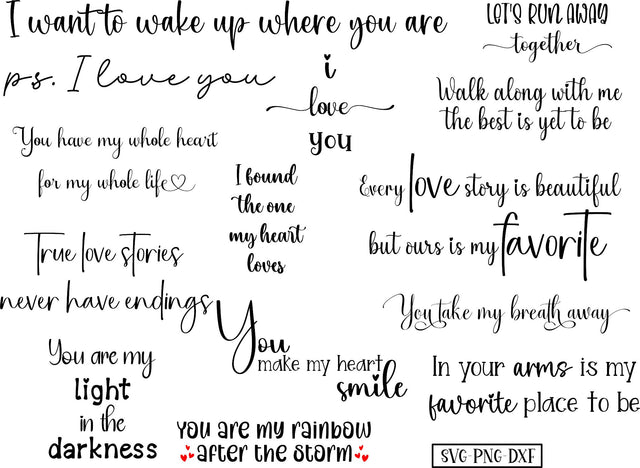 I want to wake up where you are
LET'S RUN AWAY
together
p.s. I love you
i
love
you
Walk along with me
the best is yet to be
You have my whole heart
for my whole life
I found
the one
my heart
loves
Every love story is beautiful
but ours is my favorite
True love stories
never have endings
You take my breath away
You
make my heart
smile
You are my
light
in the
darkness
In your arms is my
favorite place to be
You are my rainbow
after the storm
SVG-PNG-DXF